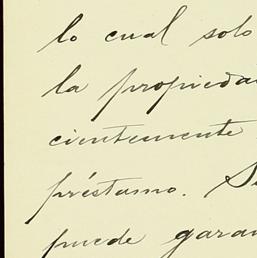 lo cual solo
la propiedad
cientemente
préstamo. Si
puede garan